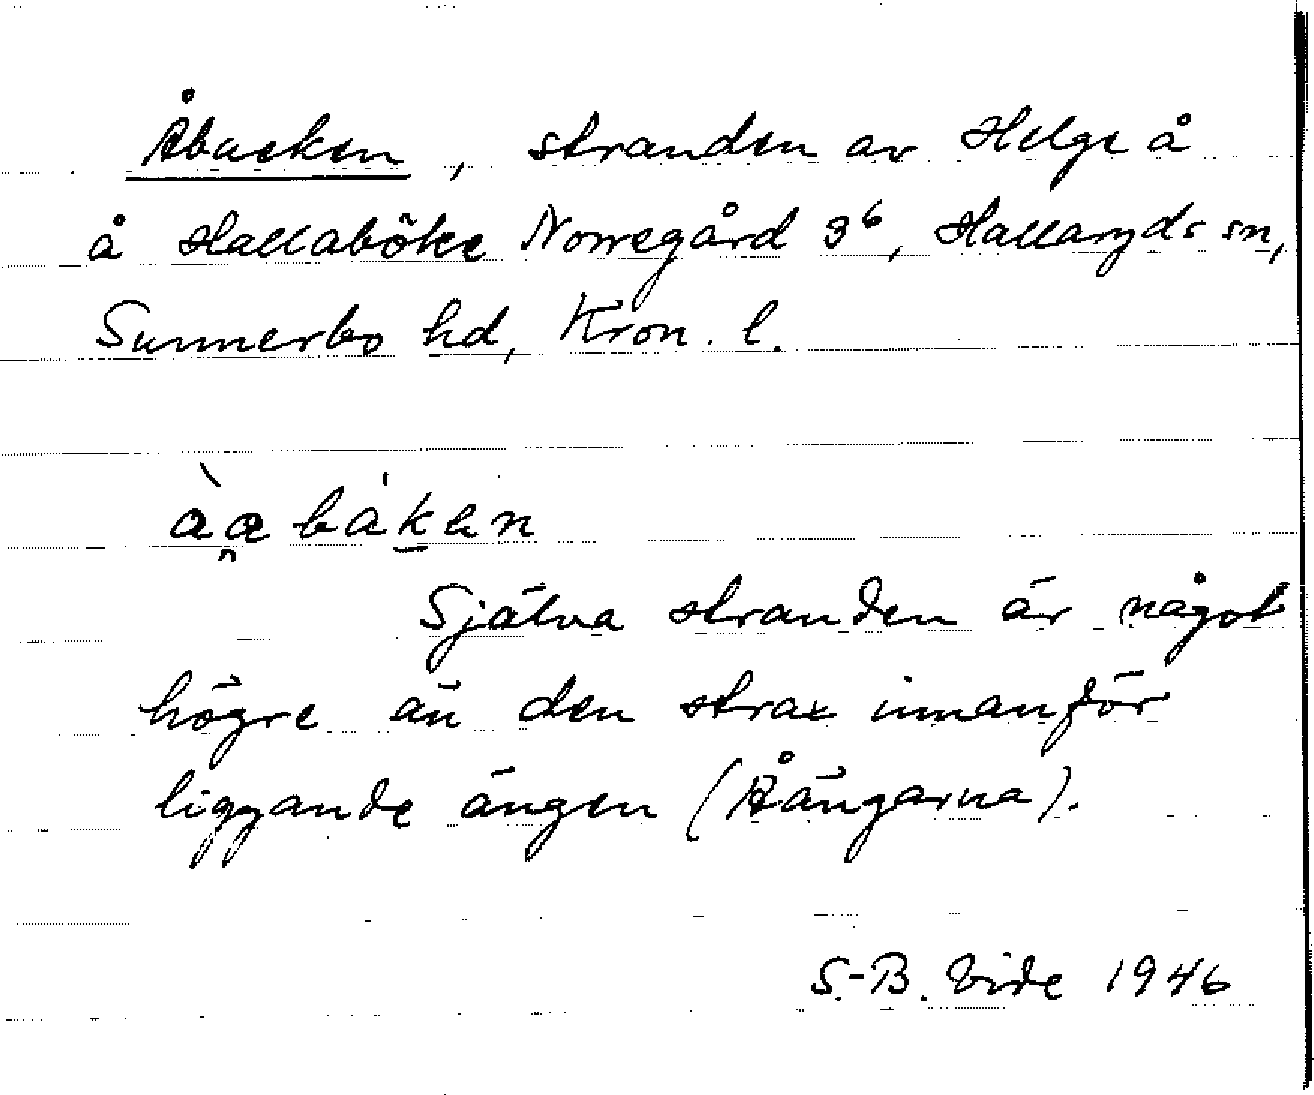 Åbacken, stranden av Helge å
å Hallaböke Norregård 3⁶, Hallaryds sn,
Sunnerbo hd, Kron. l.
Själva stranden är något
högre än den strax innanför
liggande ängen (Åängarna).
S.-B. Vide 1946